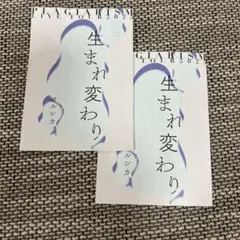 PLAGIARISM
生まれ変わり
ヨルシカ
PLAGIARISM
生まれ変わり
ヨルシカ